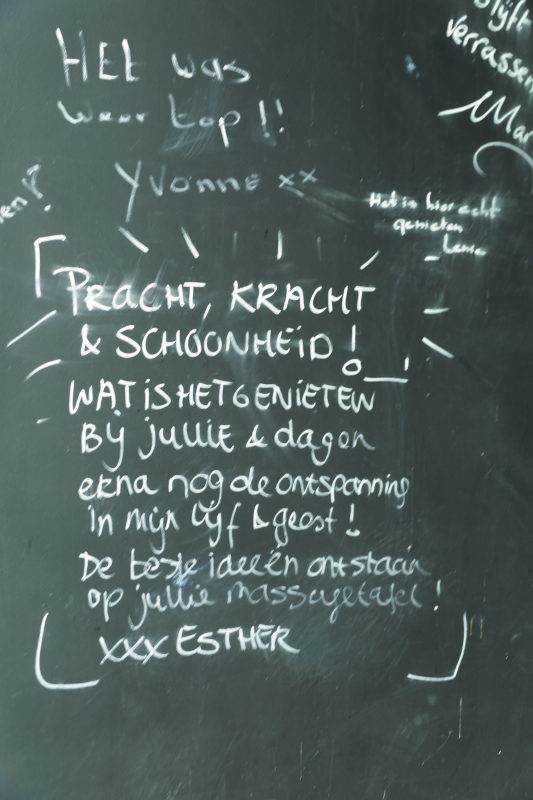 Blijft
verrassen
Mar
HEt was
weer top!!
Yvonne xx
en?
Het is hier echt
genieten
Lenie
PRACHT, KRACHT
& SCHOONHEiD!
WAT iS HET GENiETEN
Bij jullie & dagen
erna nog de ontspanning
in mijn lijf & geest!
De beste ideeën ontstaan
op jullie massagetafel!
xxx ESTHER